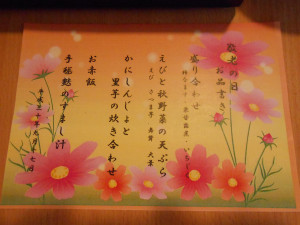 敬老の日
お品書き
盛り合わせ
えびと秋野菜の天ぷら
えび さつま芋
かにしんじょと
里芋の炊き合わせ
お赤飯
手毬麩のすまし汁